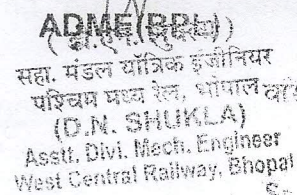 ADME(BPL)
सहा. मंडल यांत्रिक इंजीनियर
पश्चिम मध्य रेल, भोपाल
(D.N. SHUKLA)
Asstt. Divi. Mech. Engineer
West Central Railway, Bhopal